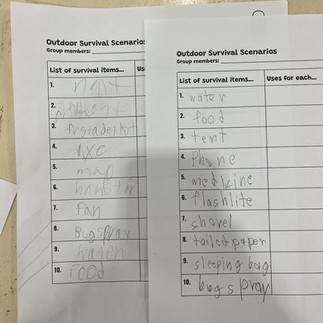 Outdoor Survival Scenarios
Group members:
List of survival items...
Use
1.
2.
3. firstadekit
4. axe
5. map
6.
7. fan
8. Bugspray
9. water
10. FOOD
Outdoor Survival Scenarios
Group members:
List of survival items...
Uses for each...
1. water
2. food
3. tent
4. Phone
5. medicine
6. flashlite
7. shovel
8. toiled paper
9. sleeping bag
10. bug spray